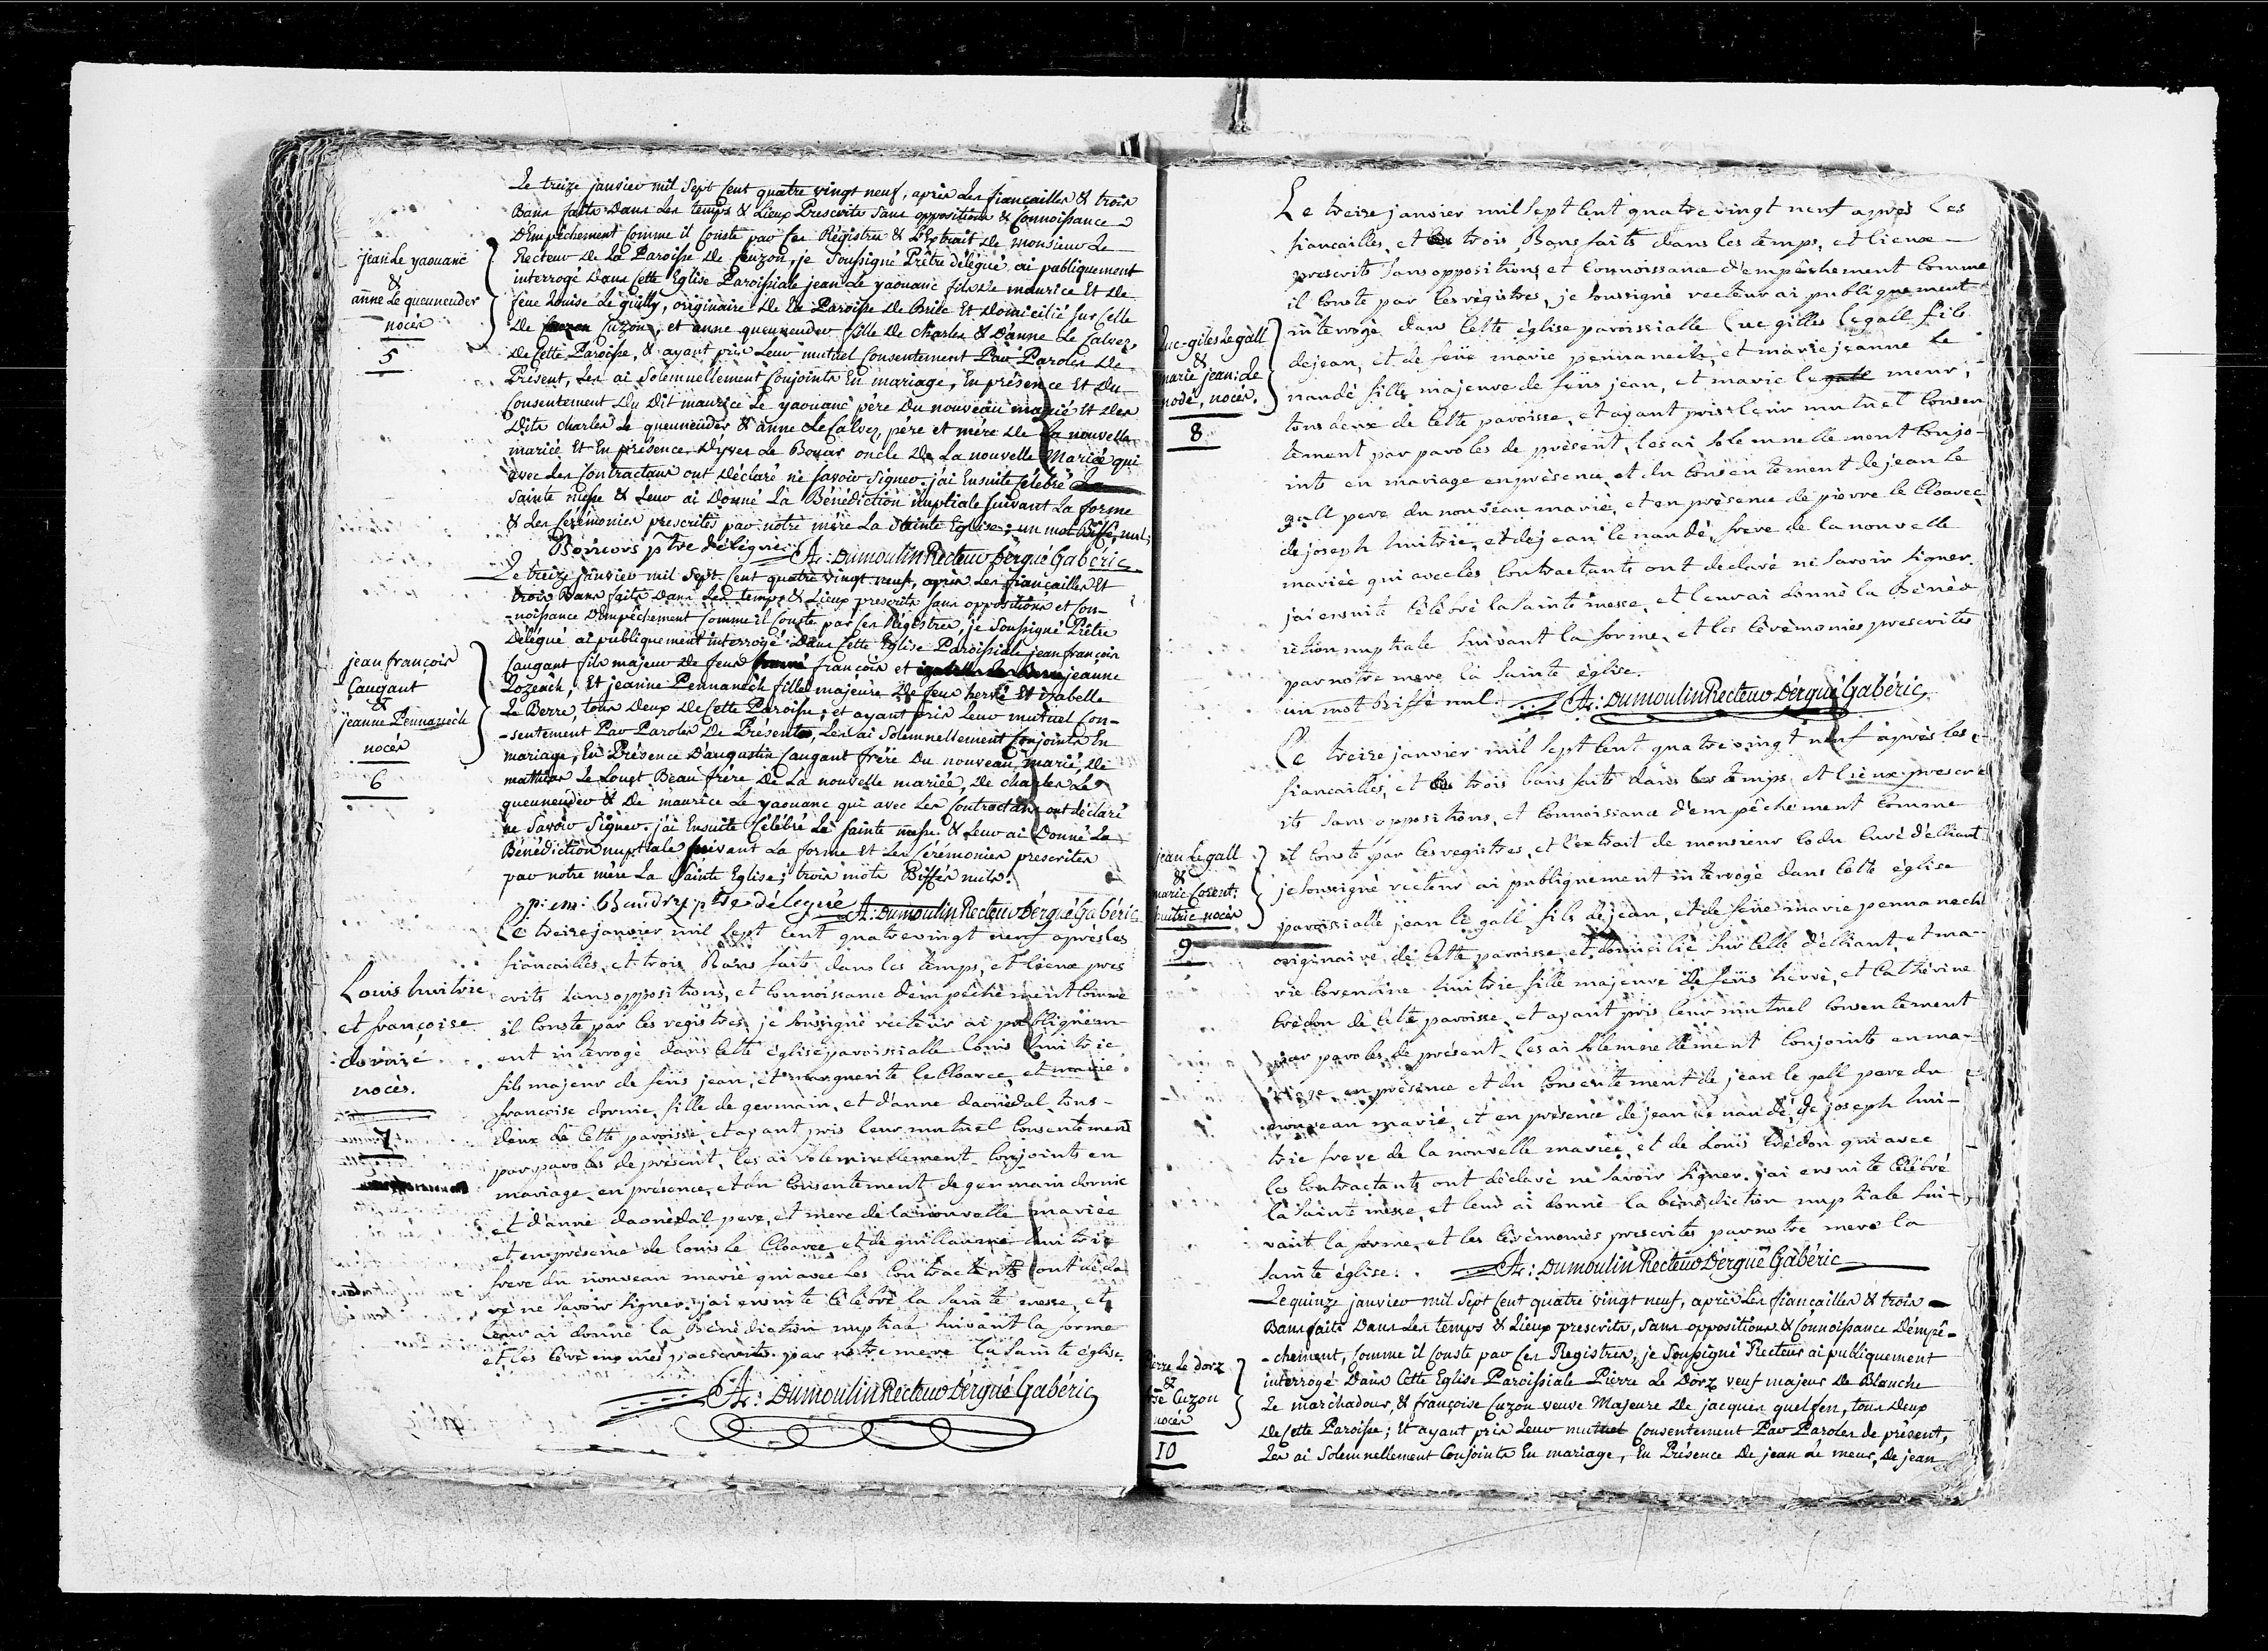 Le treize janvier mil Sept Cent quatre vingt neuf, après Les fiançailles & trois
Bans faits Dans Les temps & Lieux Prescrits Sans oppositions & Connoissance
D'Empêchement Comme il Conste par Ces Régistres & L'Extrait De monsieur Le
Recteur De La Paroisse De Cuzon, je Soussigné Prêtre délégué ai publiquement
interrogé Dans Cette Eglise Paroissiale jean Le yaouanc fils De maurice Et De
feue Louise Le guilly, originaire De La Paroisse De Briec Et Domicilié Sur Celle
De Cuzon, et anne queuneuder fille De Charles & D'anne Le Calvez,
De Cette Paroisse, & ayant pris Leur mutuel Consentement Par Paroles De
Présent, Les ai Solemnellement Conjoints En mariage, En présence Et Du
Consentement Du Dit maurice Le yaouanc père Du nouveau marié Et Des
Dits charles Le queuneuder & anne Le Calvez, père et mère De La nouvelle
mariée Et En présence D'yves Le Bouar oncle De La nouvelle Mariée qui
avec Les Contractans ont Déclaré ne Savoir Signer. j'ai Ensuite Célébré La
Sainte messe & Leur ai Donné La Bénédiction nuptiale Suivant La forme
& Les Cérémonies prescrites par notre mère La Sainte Eglise; un mot Biffé, nul;
ptre délégué A: Dumoulin Recteur D'ergué Gabéric
jean Le yaouanc
&
anne Le queuneuder
nocés
5
Le treize janvier mil Sept Cent quatre vingt neuf, après Les fiançailles Et
trois Bans faits Dans Les temps & Lieux prescrits Sans oppositions et Con-
-noissance D'Empêchement Comme il Conste par Ces Régistres, je Soussigné Prêtre
Délégué ai publiquement interrogé Dans Cette Eglise Paroissiale jean françois
Caugant fils majeur De feus françois et jeanne
Lozeach, Et jeanne Pennanech fille majeure De feus hervé Et izabelle
Le Berre, tous Deux De Cette Paroisse; et ayant pris Leur mutuel Con-
-sentement Par Paroles De Présent, Les ai Solemnellement Conjoints En
mariage, En Présence D'augustin Caugant frère Du nouveau marié, De
mathias Le Louet Beau frère De La nouvelle mariée, De charles Le
queuneuder & De maurice Le yaouanc qui avec Les Contractans ont déclaré
ne Savoir Signer. j'ai Ensuite Célébré La Sainte messe & Leur ai Donné La
Bénédiction nuptiale Suivant La forme Et Les Cérémonies prescrites
par notre mère La Sainte Eglise; trois mots Biffés nuls.
p: m: Chaudry ptre délégué A: Dumoulin Recteur D'ergué Gabéric
jean françois
Caugant
&
jeanne Pennanech
nocés
6
Le treize janvier mil Sept Cent quatre vingt neuf après les
fiançailles, et trois Bans faits dans les temps, et lieux pres
crits Sans oppositions, et Connoissance d'empêchement Comme
il Conste par les registres, je Soussigné recteur ai publiquem-
ent interrogé dans Cette église paroissialle Louis huitric
fils majeur de feüs jean, et marguerite le Cloarec, et marie
françoise dornic, fille de germain, et d'anne daonédal tous
deux de Cette paroisse, et ayant pris leur mutuel Consentement
par paroles de présent, les ai Solemnellement Conjoints en
mariage, en présence, et du Consentement de germain dornic
et d'anne daonédal pere, et mere de la nouvelle mariée
et en présence de louis le Cloarec, et de guillaume huitric
frere du nouveau marié qui avec les Contractants ont décla
ré ne Savoir Signer. j'ai ensuite Célébré la Sainte messe, et
leur ai donné la Bénédiction nuptiale Suivant la forme
et les Cérémonies prescrites par notre mere la Sainte église.
A: Dumoulin Recteur D'ergué Gabéric
Louis huitric
et françoise
nocés.
7
Le treize janvier mil Sept Cent quatre vingt neuf après les
fiançailles, et trois Bans faits dans les temps, et lieux
prescrits Sans oppositions, et Connoissance d'empêchement Comme
il Conste par les régistres, je Soussigné recteur ai publiquement
interrogé dans Cette église paroissialle Luc gilles le gall fils
de jean, et de feüe marie pennanech, et marie jeanne le
nandé fille majeure de feüs jean, et marie le gall meur,
tous deux de Cette paroisse, et ayant pris leur mutuel Consen
tement par paroles de présent, les ai Solemnellement Conjo-
ints en mariage en présence, et du Consentement de jean le
gall pere du nouveau marié, et en présence de pierre le Cloarec
de joseph huitric, et de jean le nandé, frere de la nouvelle
mariée qui avec les Contractants ont déclaré ne Savoir Signer.
j'ai ensuite Célébré la Sainte messe, et leur ai donné la Bénéd
iction nuptiale Suivant la forme, et les Cérémonies prescrites
par notre mere la Sainte église.
un mot biffé nul. A: Dumoulin Recteur D'ergué Gabéric
Luc-gilles Le gall
&
marie jean: Le
nocés.
8
Le treize janvier mil Sept Cent quatre vingt neuf après les
fiançailles, et trois bans faits dans les temps, et lieux prescr
its Sans oppositions, et Connoissance d'empêchement Comme
il Conste par les registres, et l'extrait de monsieur le Curé d'elliant
je Soussigné recteur ai publiquement interrogé dans Cette église
paroissialle jean le gall fils de jean, et de feüe marie pennanech
originaire de Cette paroisse, et domicilié Sur Celle d'elliant, et ma-
rie Corentine huitric fille majeure de feüs hervé, et Catherine
Crédou de Cette paroisse, et ayant pris leur mutuel Consentement
par paroles de présent, les ai Solemnellement Conjoints en ma-
riage en présence et du Consentement de jean le gall pere du
nouveau marié, et en présence de jean le nandé, de joseph hui-
tric frere de la nouvelle mariée, et de Louis Crédou qui avec
les Contractants ont déclaré ne Savoir Signer. j'ai ensuite Célébré
la Sainte messe, et leur ai donné la bénédiction nuptiale Sui-
vant la forme, et les Cérémonies prescrites par notre mere la
Sainte église. A: Dumoulin Recteur D'ergué Gabéric
jean Le gall
&
marie Corent:
huitric nocés
9
Le quinze janvier mil Sept Cent quatre vingt neuf, après Les fiançailles & trois
Bans faits Dans Les temps & Lieux prescrits, Sans oppositions & Connoissance D'empê-
-chement, Comme il Conste par Ces Registres, je Soussigné Recteur ai publiquement
interrogé Dans Cette Eglise Paroissiale Pierre Le Dorz veuf majeur De Blanche
Le marchadour, & françoise Cuzon veuve Majeure De jacques quelfen, tous Deux
De Cette Paroisse; Et ayant pris Leur mutuel Consentement Par Paroles de présent,
Les ai Solemnellement Conjoints En mariage, En Présence De jean Le meur, De jean
Le dorz
&
Cuzon
nocés
10